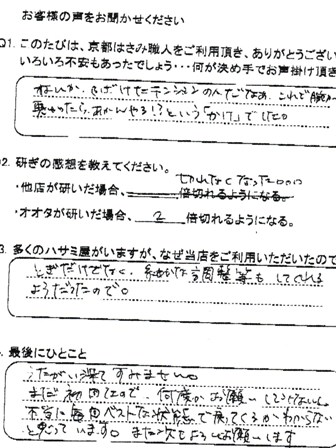 お客様の声をお聞かせください
Q1. このたびは、京都はさみ職人をご利用頂き、ありがとうござい
いろいろ不安もあったでしょう・・・何が決め手でお声掛け頂き
なんか、ふざけたテンションの人だなあ、これで腕が
悪かったら、あかんやろ!?という「かけ」でした。
2. 研ぎの感想を教えてください。
切れなくなった。
・他店が研いだ場合、 倍切れるようになる。
・オオタが研いだ場合、 2 倍切れるようになる。
3. 多くのハサミ屋がいますが、なぜ当店をご利用いただいたので
とぎだけでなく、細かな調整等もしてくれる
ようだったので。
最後にひとこと
うたがい深くてすみません。
まだ初回なので、何度かお願いしてみないと
本当に毎回ベストな状態で戻ってくるかわからない
と思っています。また次もよろしくお願いします